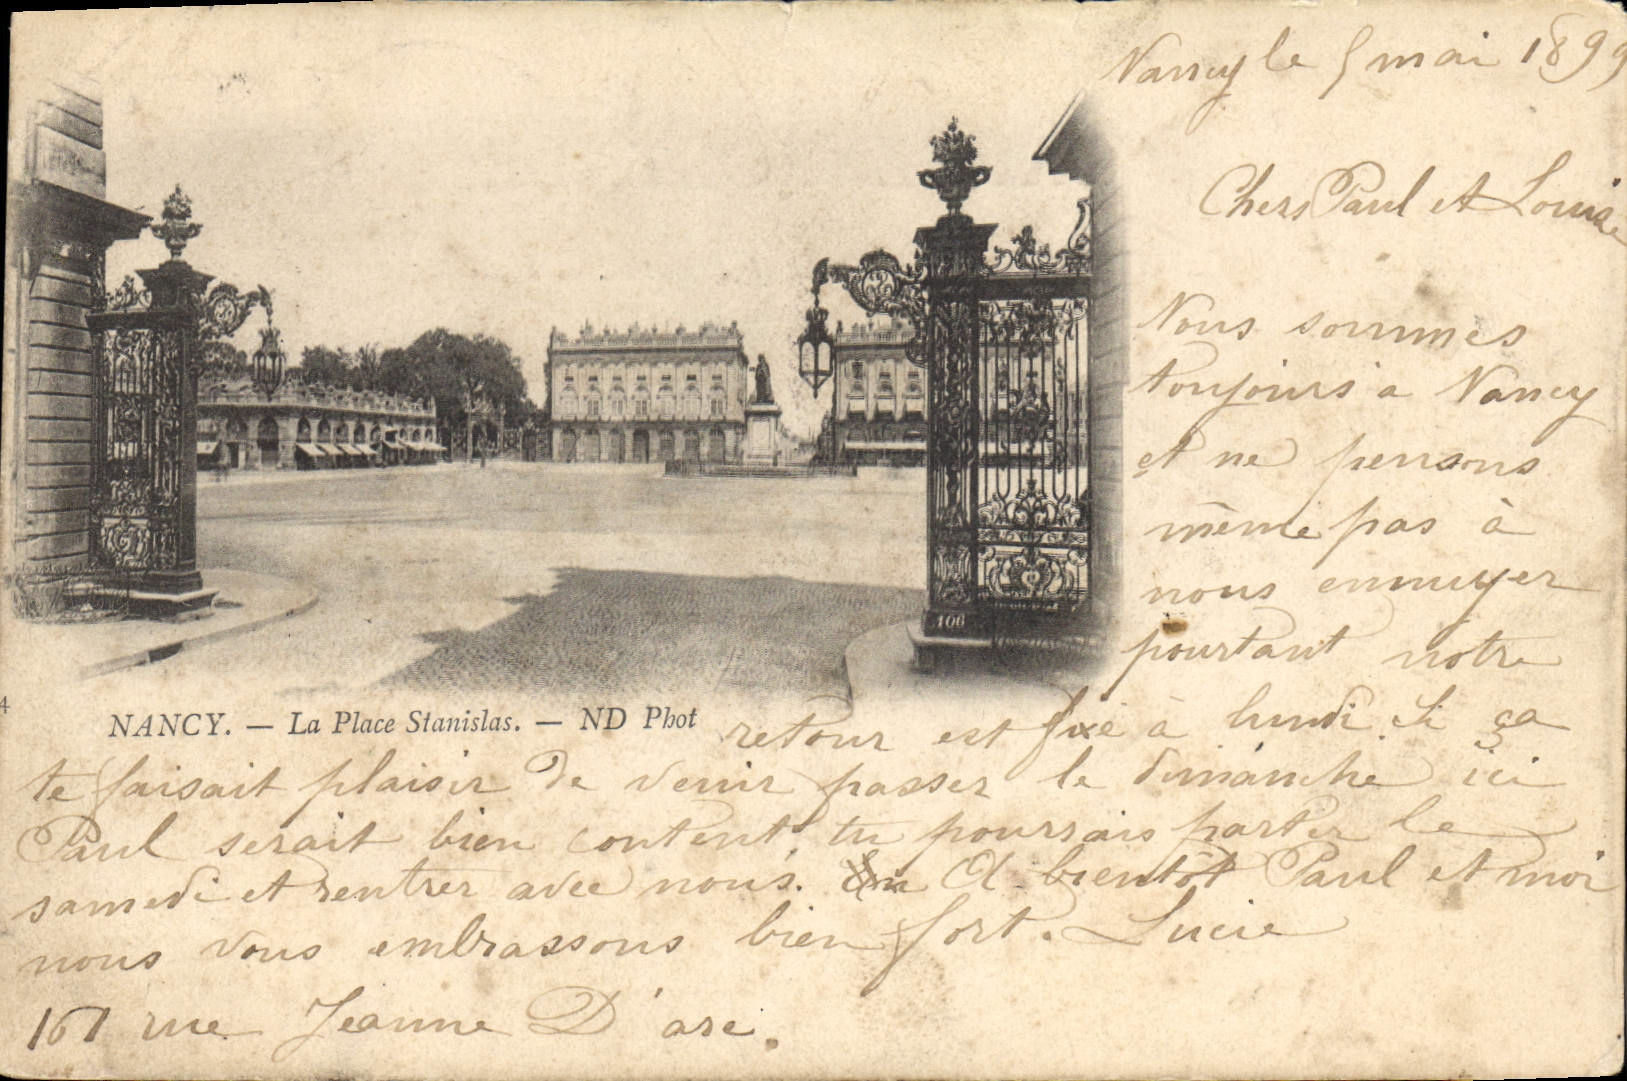 Nancy le 5 mai 1899
Chers Paul et Louise
Nous sommes
toujours a Nancy
et ne pensons
même pas à
nous ennuyer
pourtant notre
106
4
NANCY. — La Place Stanislas. — ND Phot
retour est fixé à lundi. Si ça
te faisait plaisir de venir passer le dimanche ici
Paul serait bien content, tu pourrais partir le
samedi et rentrer avec nous. A bientôt Paul et moi
nous vous embrassons bien fort. Lucie
161 rue Jeanne D'arc.